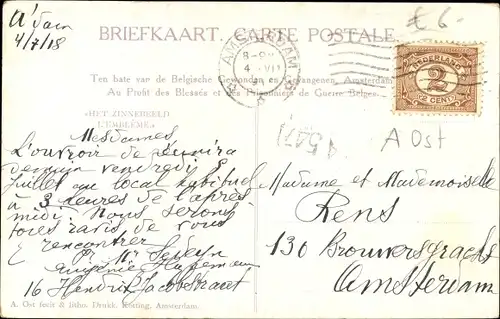 A'dam
4/7/18
£ 6-
BRIEFKAART. CARTE POSTALE.
AMSTERDAM
8-9
4 VII
NEDERLAND
2
2 CENT 2
Ten bate van de Belgische Gewonden en Gevangenen, Amsterdam
Au Profit des Blessés et des Prisonniers de Guerre Belges.
«HET ZINNEBEELD
L'EMBLÈME»
A Ost
Mesdames
L'ouvroir de réunira
demain vendredi 5
juillet au local habituel
à 3 heures de l'après
midi. Nous serons
ravis de vous
rencontrer
16 Hendrik Jacobstraat
Madame et Mademoiselle
Rens
130 Brouwersgracht
Amsterdam
A. Ost fecit & litho. Drukk. Kötting, Amsterdam.